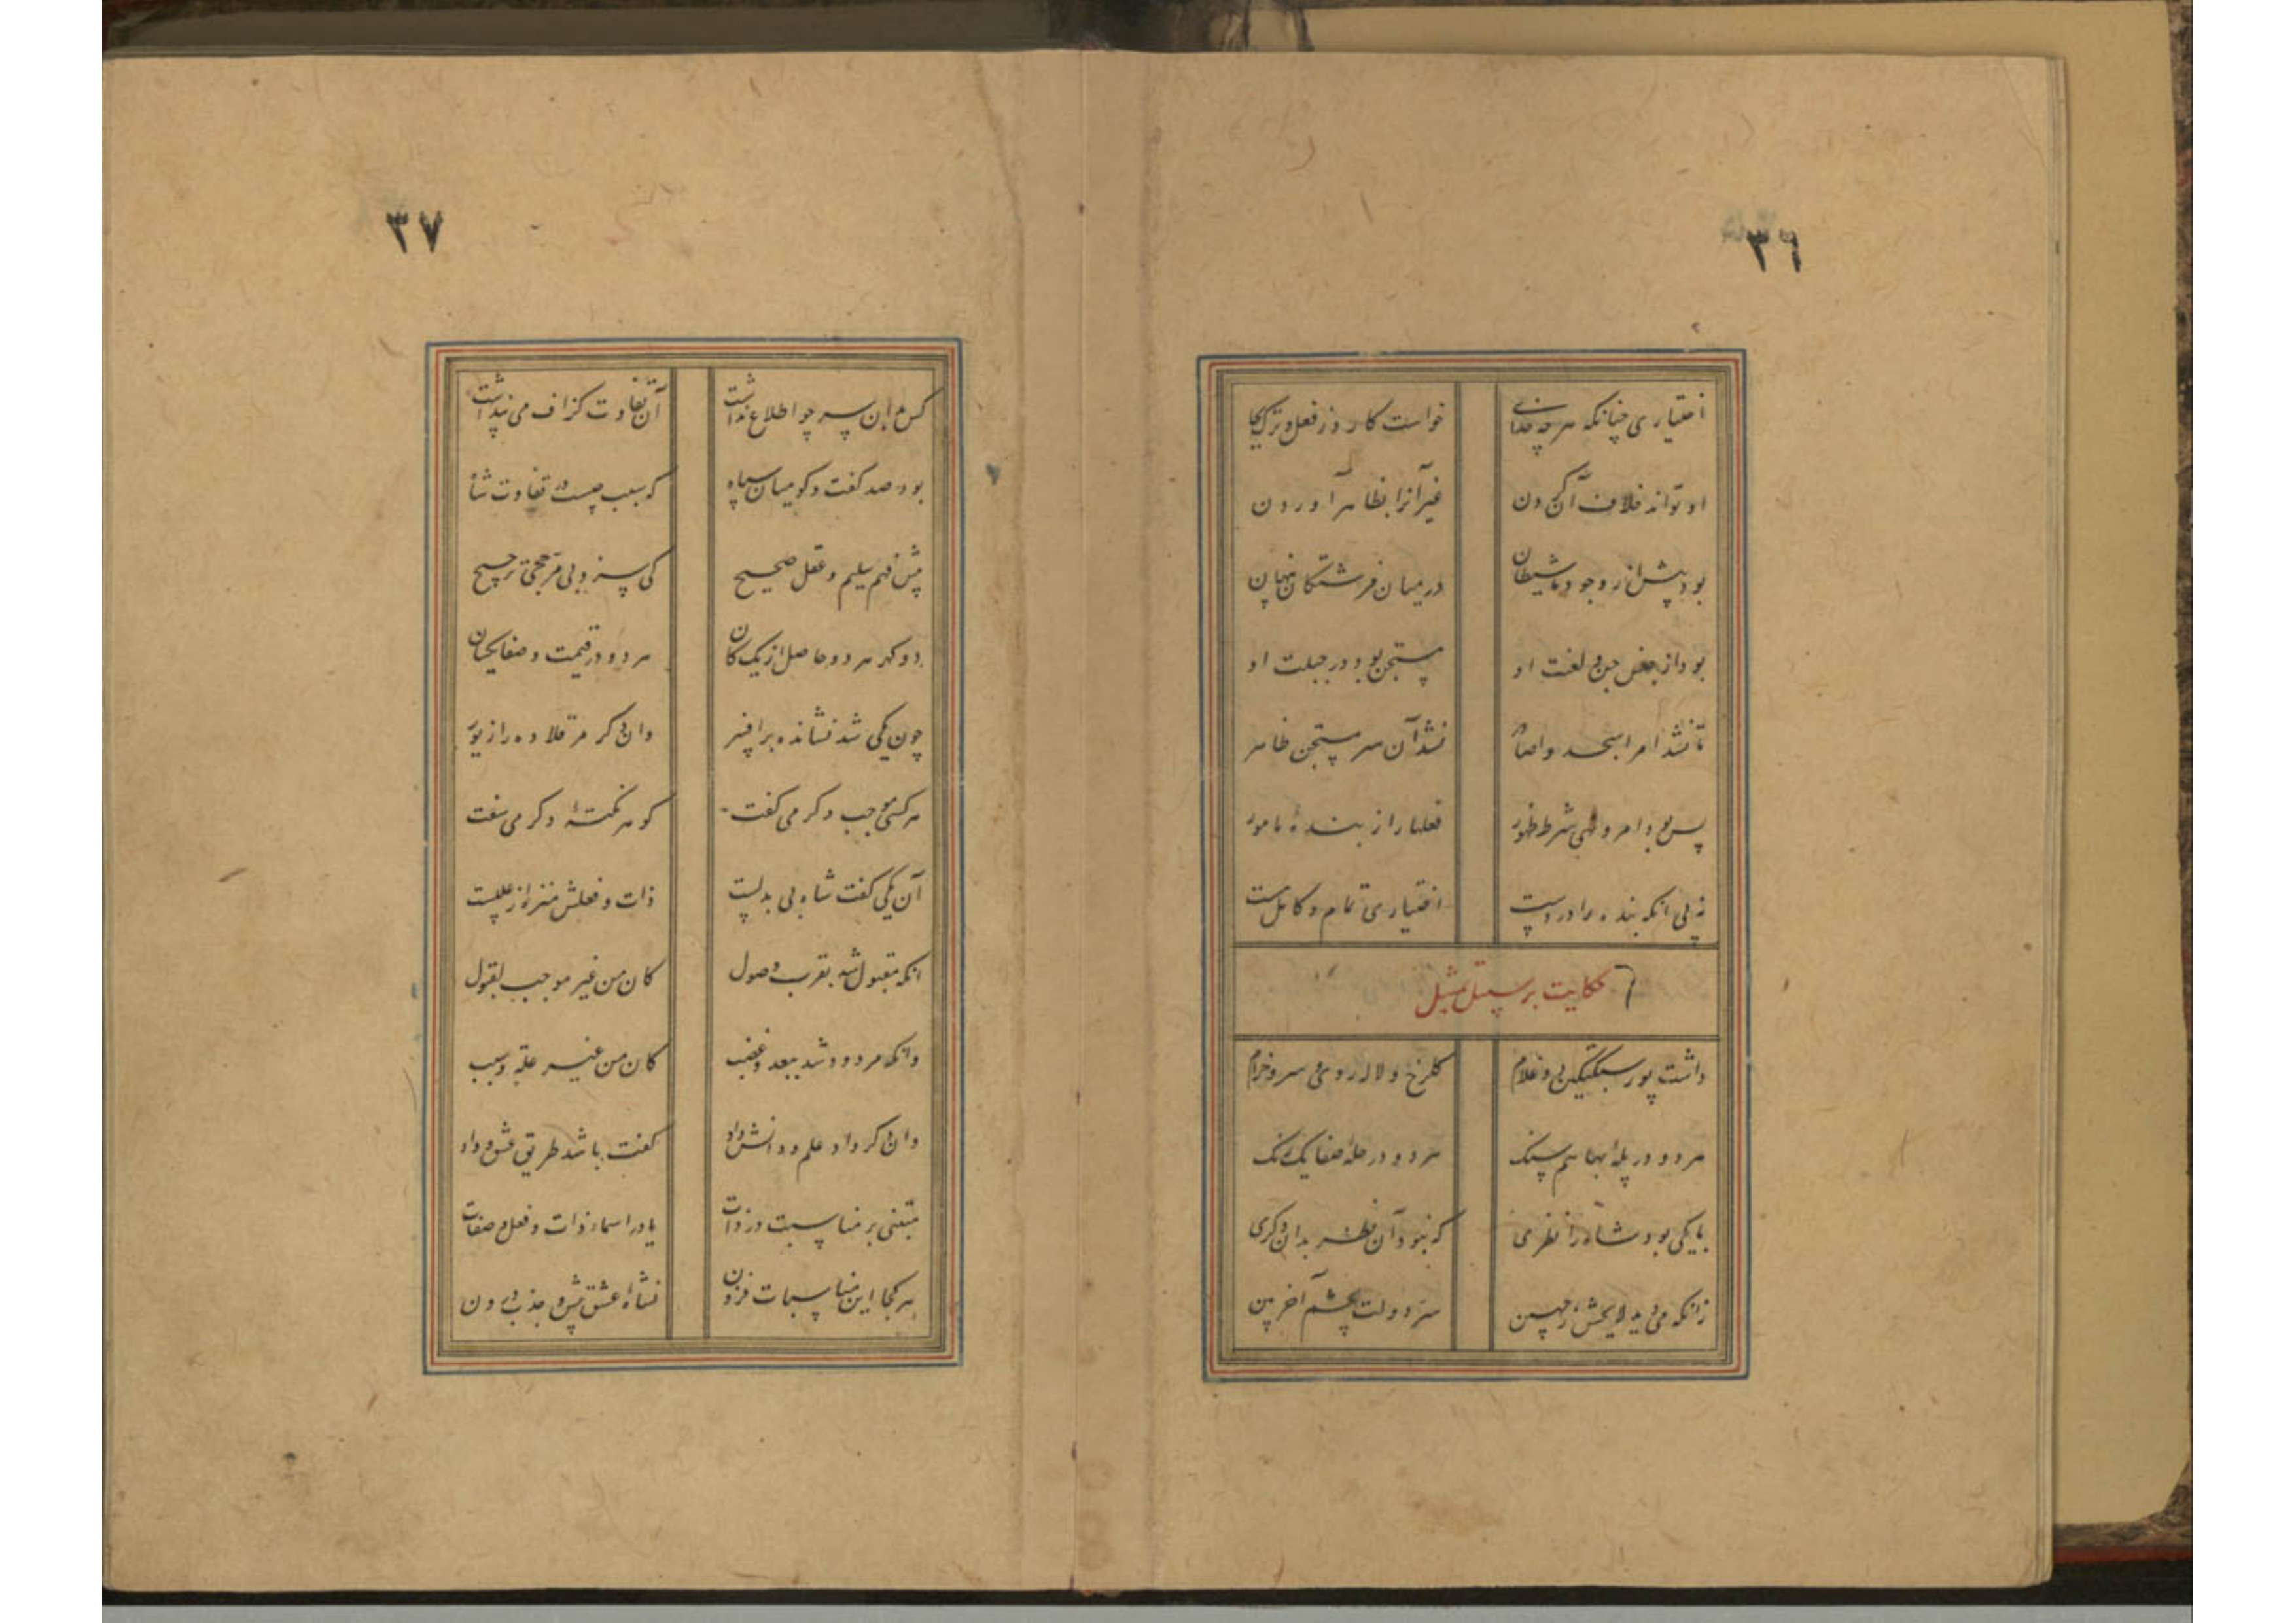 ٣٦
اختیاری چنانکه هرچه خدای خواست کارد ز فعل و ترک بجا
او تواند خلاف آن کردن غیر آنرا بظاهر آوردن
بود پیش از وجود ما شیطان در میان فرشتگان پنهان
بود از جنس جن و لغت او مستجن بود در جبلت او
تا نشد امر اسجدوا صادر نشد آن سر مستجن ظاهر
پس بود امر و نهی شرط ظهور فعلها را ز بنده مامور
نه پی انکه بنده را در دست اختیاری تمام و کامل هست
حکایت بر سبیل تمثیل
داشت پور سبکتکین دو غلام گلرخ و لاله روی و سرو خرام
هر دو در پله بها هم سنک هر دو در حله صفا یک رنک
با یکی بود شاه را نظری که نبود آن نظر بدان دگری
زانکه می دید لایحش ز جبین سر دولت بچشم آخر بین
٣٧
کس ازین سر چو اطلاع نداشت آن تفاوت گزاف می پنداشت
بود صد گفت و گو میان سپاه که سبب چیست در تفاوت شاه
پیش فهم سلیم و عقل صحیح کی سزد بی مرجحی ترجیح
دو گهر هر دو حاصل از یک کان هر دو در قیمت و صفا یکسان
چون یکی شد نشانده بر افسر وان دگر مر قلاده را زیور
هر کسی موجب دگر می گفت گوهر نکتهٔ دگر می سفت
آن یکی گفت شاه بی بدلست ذات و فعلش منزه از عللست
انکه مقبول شد بقرب وصول کان من غیر موجب لقبول
وانکه مردود شد ببعد و غضب کان من غیر علة و سبب
وان دگر داد علم و دانش داد گفت باشد طریق عشق و داد
مبتنی بر مناسبت در ذات یا در اسماء ذات و فعل و صفات
هر کجا این مناسبات فزون نشاهٔ عشق بیش و جذب درون